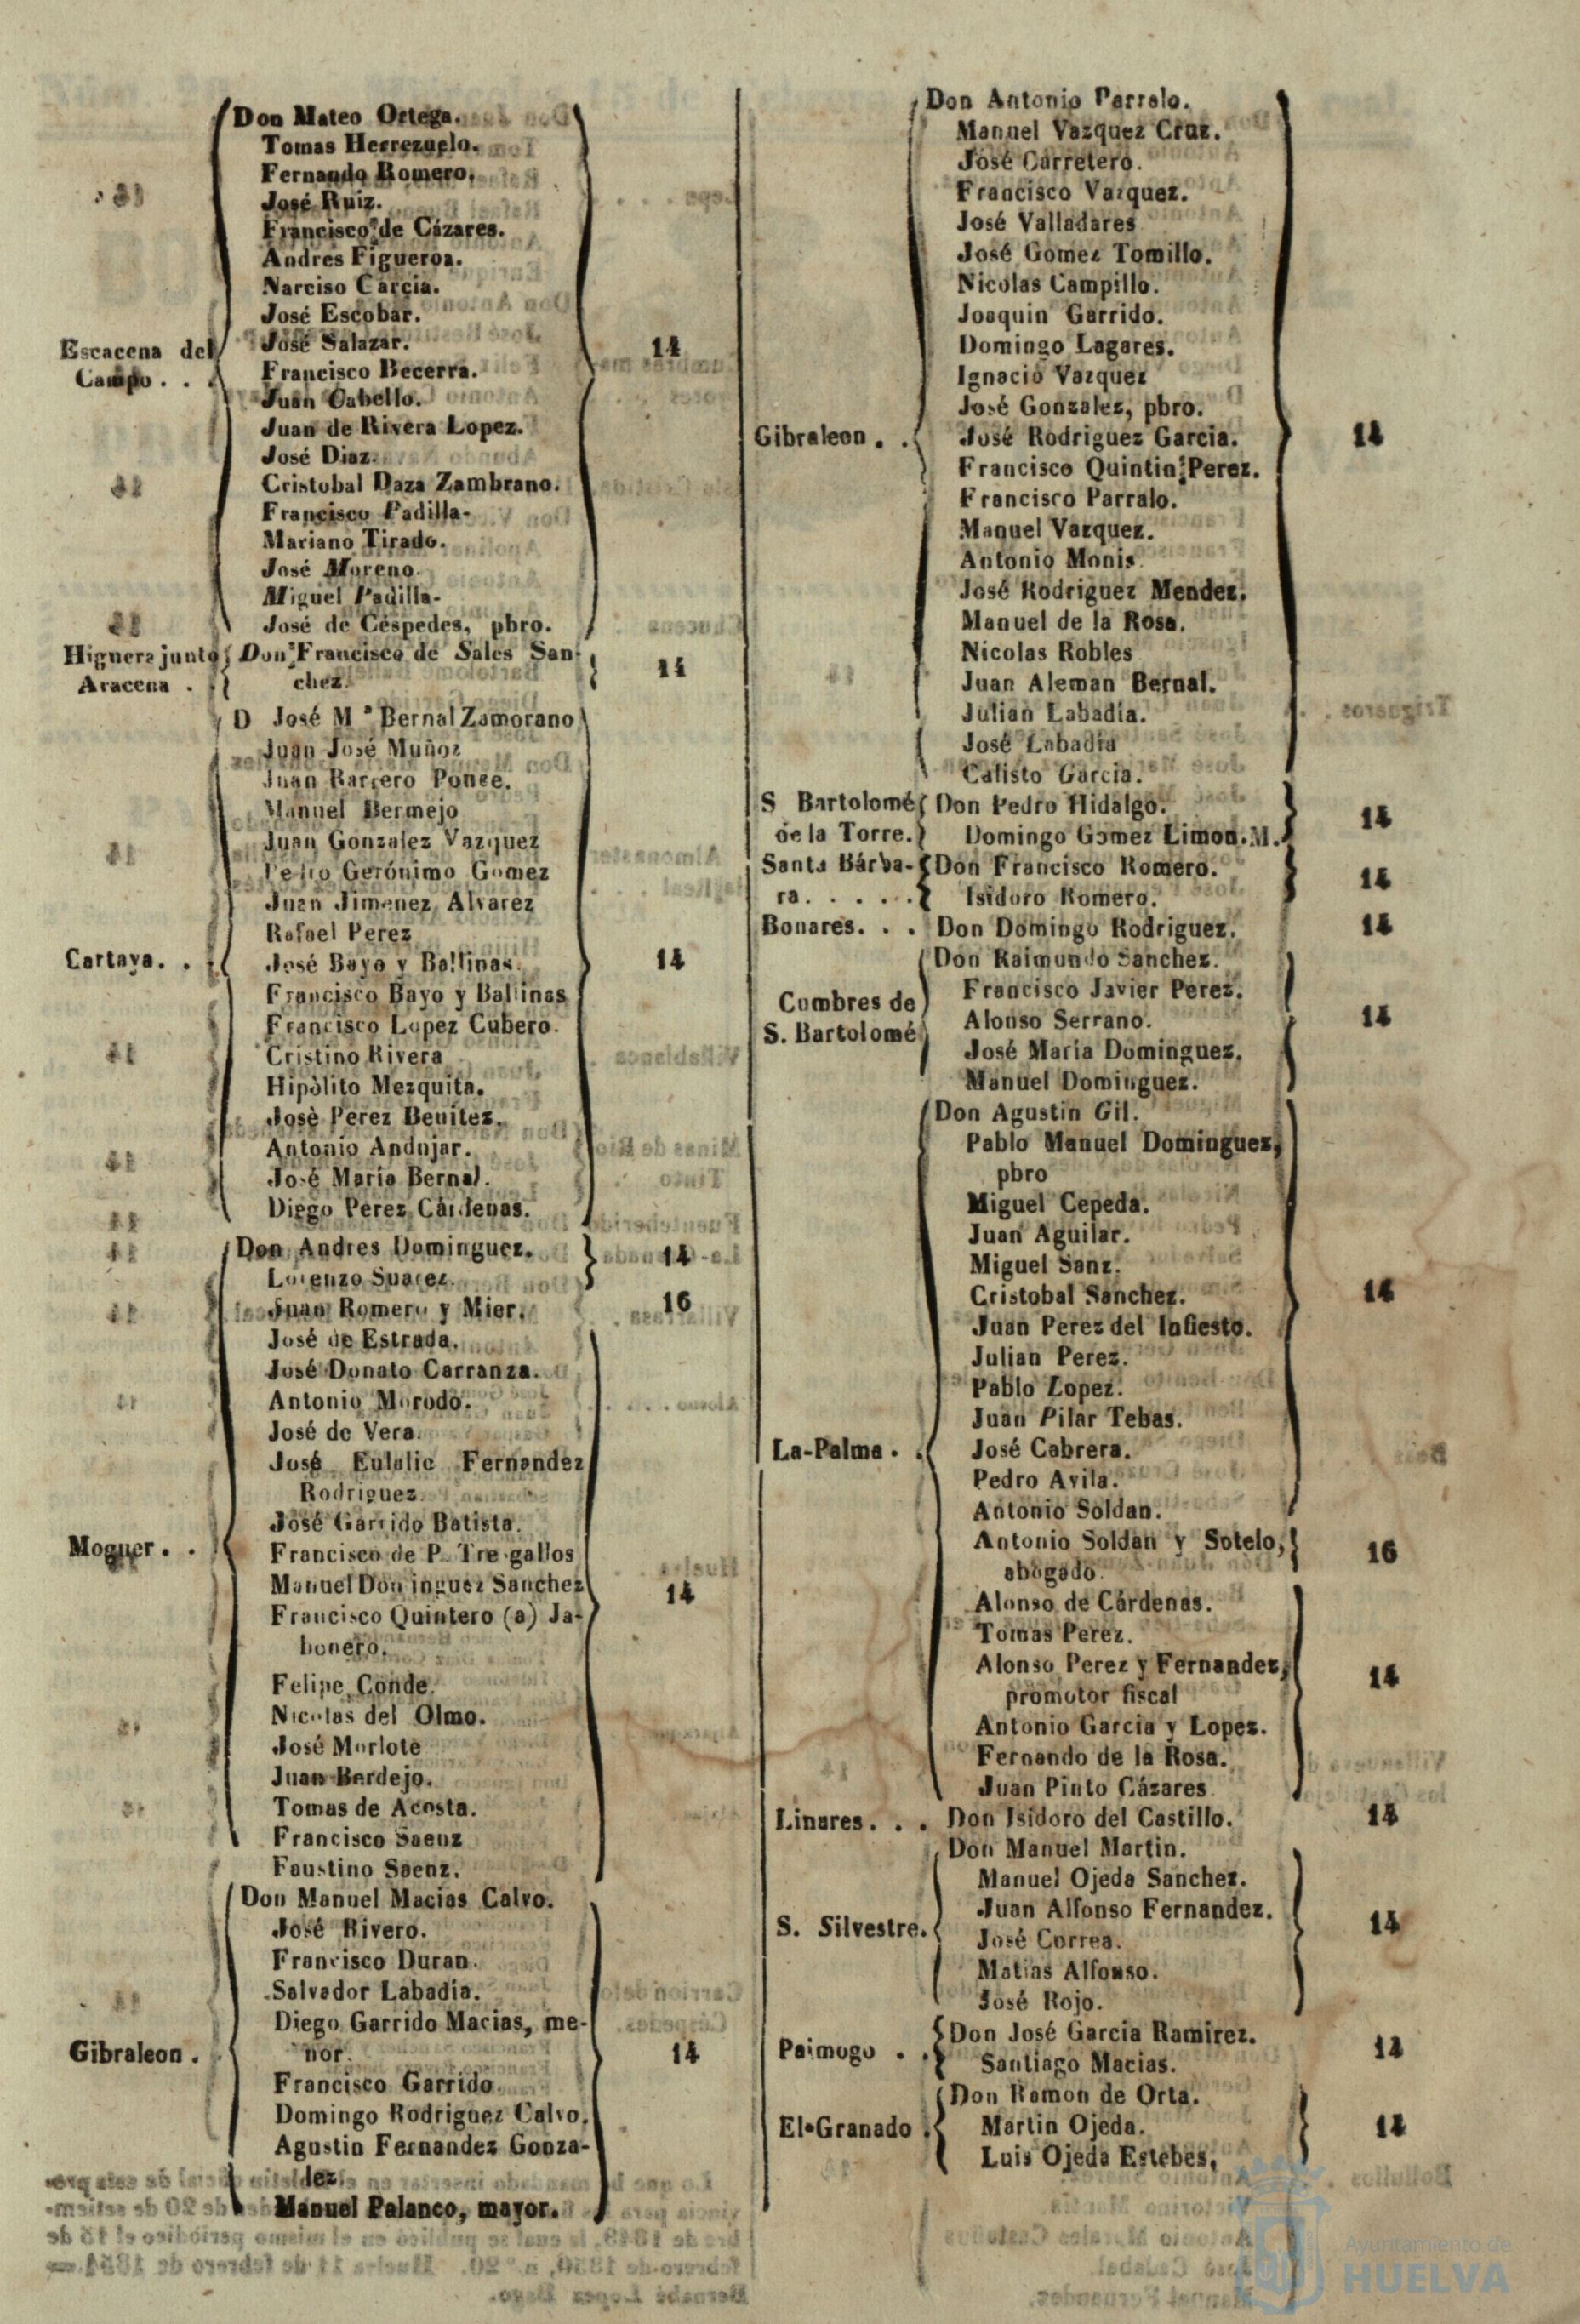 Don Mateo Ortega.
Tomas Herrezuelo.
Fernando Romero.
José Ruiz.
Francisco de Cázares.
Andres Figueroa.
Narciso Carcia.
José Escobar.
Escacena del José Salazar. 14
Campo . . Francisco Becerra.
Juan Cabello.
Juan de Rivera Lopez.
José Diaz.
Cristobal Daza Zambrano.
Francisco Padilla-
Mariano Tirado.
José Moreno.
Miguel Padilla-
José de Céspedes, pbro.
Higuera junto Don Francisco de Sales San- 14
Aracena . . chez.
D José M.ª Bernal Zamorano
Juan José Muñoz
Juan Barrero Ponce.
Manuel Bermejo
Juan Gonzalez Vazquez
Pedro Gerónimo Gomez
Juan Jimenez Alvarez
Rafael Perez
Cartaya. . . José Bayo y Ballinas. 14
Francisco Bayo y Ballinas
Francisco Lopez Cubero.
Cristino Rivera
Hipòlito Mezquita.
Josè Perez Benitez.
Antonio Andujar.
José Maria Bernal.
Diego Perez Cárdenas.
Don Andres Dominguez. 14
Lorenzo Suarez.
Juan Romero y Mier. 16
José de Estrada.
José Donato Carranza.
Antonio Morodo.
José de Vera.
José Eulalio Fernandez
Rodriguez
José Garrido Batista.
Moguer. . . Francisco de P. Tre gallos
Manuel Dominguez Sanchez 14
Francisco Quintero (a) Ja-
bonero.
Felipe Conde.
Nicolas del Olmo.
José Morlote
Juan Berdejo.
Tomas de Acosta.
Francisco Saenz
Faustino Saenz.
Don Manuel Macias Calvo.
José Rivero.
Francisco Duran.
Salvador Labadía.
Diego Garrido Macias, me-
Gibraleon . nor. 14
Francisco Garrido
Domingo Rodriguez Calvo.
Agustin Fernandez Gonza-
lez.
Manuel Palanco, mayor.
Don Antonio Parralo.
Manuel Vazquez Cruz.
José Carretero.
Francisco Vazquez.
José Valladares
José Gomez Tomillo.
Nicolas Campillo.
Joaquin Garrido.
Domingo Lagares.
Ignacio Vazquez
José Gonzalez, pbro.
Gibraleon . . José Rodriguez Garcia. 14
Francisco Quintin Perez.
Francisco Parralo.
Manuel Vazquez.
Antonio Monis.
José Rodriguez Mendez.
Manuel de la Rosa.
Nicolas Robles
Juan Aleman Bernal.
Julian Labadía.
José Labadía
Calisto Garcia.
S Bartolomé Don Pedro Hidalgo. 14
de la Torre. Domingo Gomez Limon. M.
Santa Bárba- Don Francisco Romero. 14
ra. . . . . . Isidoro Romero.
Bonares. . . Don Domingo Rodriguez. 14
Don Raimundo Sanchez.
Cumbres de Francisco Javier Perez.
S. Bartolomé Alonso Serrano. 14
José Maria Dominguez.
Manuel Dominguez.
Don Agustin Gil.
Pablo Manuel Dominguez,
pbro
Miguel Cepeda.
Juan Aguilar.
Miguel Sanz.
Cristobal Sanchez. 14
Juan Perez del Infiesto.
Julian Perez.
Pablo Lopez.
Juan Pilar Tebas.
La-Palma . . José Cabrera.
Pedro Avila.
Antonio Soldan.
Antonio Soldan y Sotelo, 16
abogado.
Alonso de Cárdenas.
Tomas Perez.
Alonso Perez y Fernandez, 14
promotor fiscal
Antonio Garcia y Lopez.
Fernando de la Rosa.
Juan Pinto Cázares
Linares. . . Don Isidoro del Castillo. 14
Don Manuel Martin.
Manuel Ojeda Sanchez.
Juan Alfonso Fernandez.
S. Silvestre. José Correa. 14
Matias Alfonso.
José Rojo.
Paimogo . . Don José Garcia Ramirez. 14
Santiago Macias.
Don Ramon de Orta.
El-Granado . Martin Ojeda. 14
Luis Ojeda Estebes,
Ayuntamiento de
HUELVA